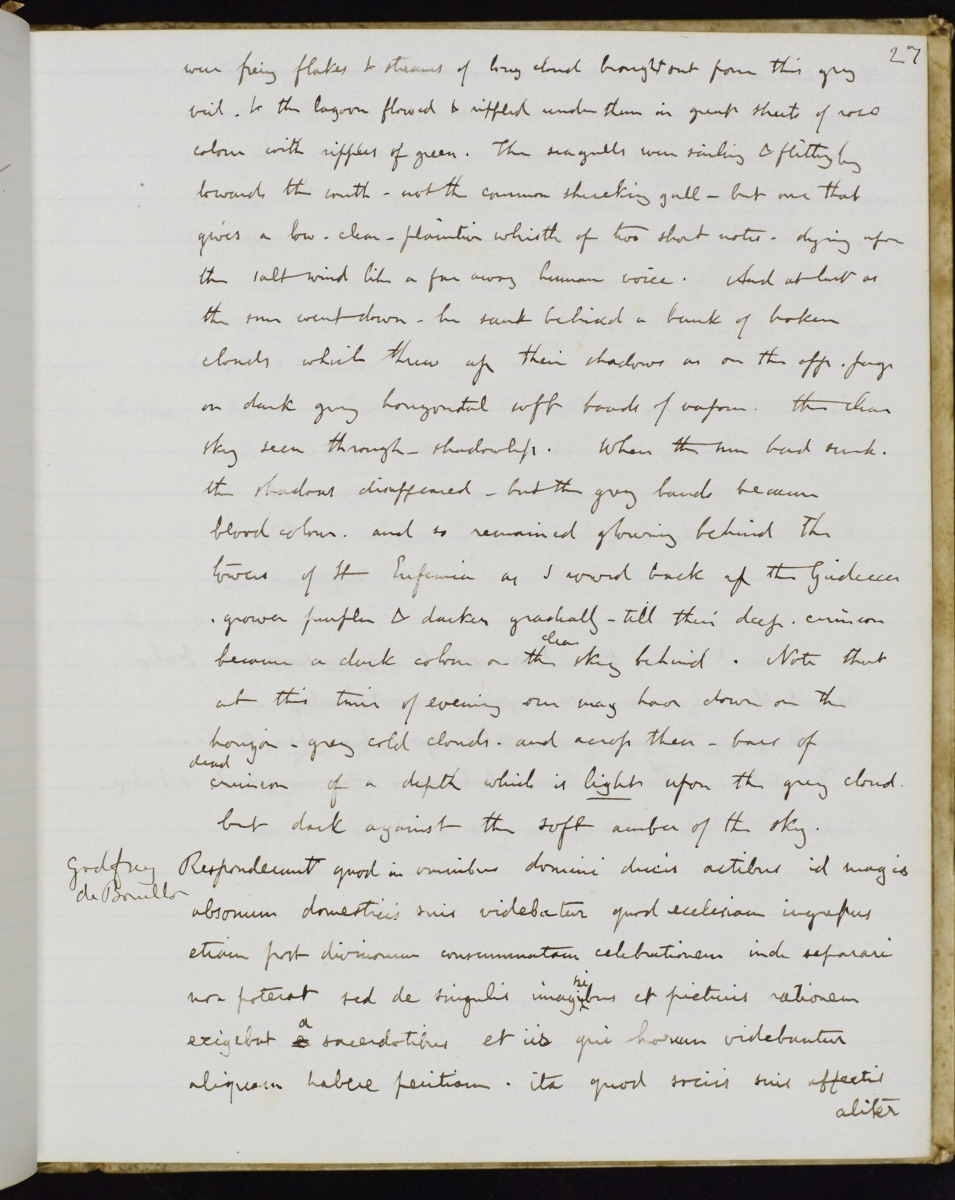 27
were firing flakes & streams of long cloud brought out from this grey
veil. & the lagoon flowed & rippled under them in great sheets of rose
colour with ripples of green. The seagulls were sailing & flitting by
towards the south - not the common shrieking gull - but one that
gives a low - clear - plaintive whistle of two short notes - dying upon
the salt wind like a far away human voice. And at last as
the sun went down - he sank behind a bank of broken
clouds which threw up their shadows as on the opp. page
on dark grey horizontal soft bands of vapour. the clear
sky seen through - shadowless. When the sun had sunk.
the shadows disappeared - but the grey bands became
blood colour. and so remained glowing behind the
towers of St Eufemia as I rowed back up the Giudecca
. grower purpler & darker gradually - till their deep. crimson
became a dark colour on the clear sky behind. Note that
at this time of evening one may have down on the
horizon - grey cold clouds. and across them - bars of
dead crimson of a depth which is light upon the grey cloud.
but dark against the soft amber of the sky.
Godfrey
de Bouillo
Responderunt quod in omnibus domini ducis actibus id magis
absonum domesticis suis videbatur quod ecclesiam ingressus
etiam post divinorum consummatam celebrationem inde separari
non poterat sed de singulis imaginibus et picturis rationem
exigebat a sacerdotibus et iis qui horum videbantur
aliquam habere peritiam. ita quod sociis suis affectis
aliter